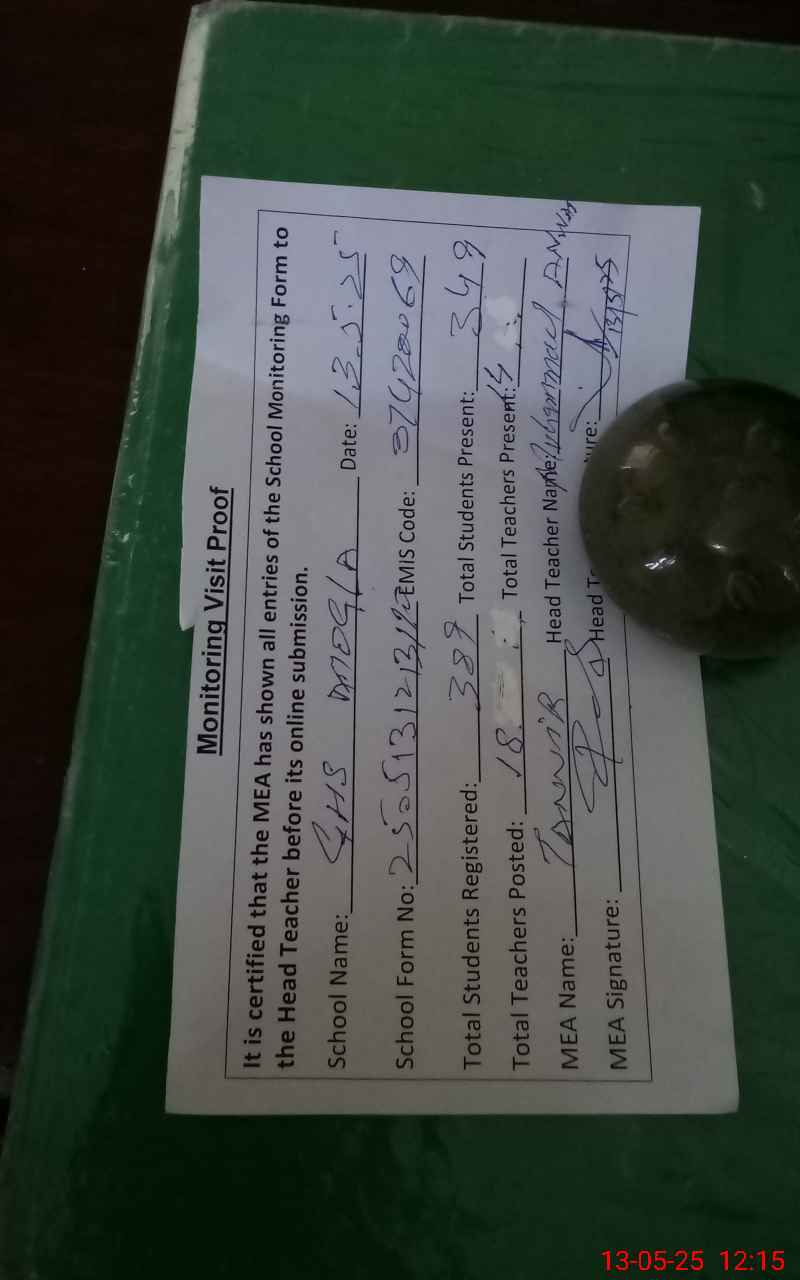 Monitoring Visit Proof
It is certified that the MEA has shown all entries of the School Monitoring Form to
the Head Teacher before its online submission.
School Name: GHS Date: 13.5.25
School Form No: EMIS Code: 37420069
Total Students Registered: 389 Total Students Present: 349
Total Teachers Posted: 18 Total Teachers Present: 14
MEA Name: TANWIR Head Teacher Name: Muhammad
MEA Signature: Head
13-05-25 12:15